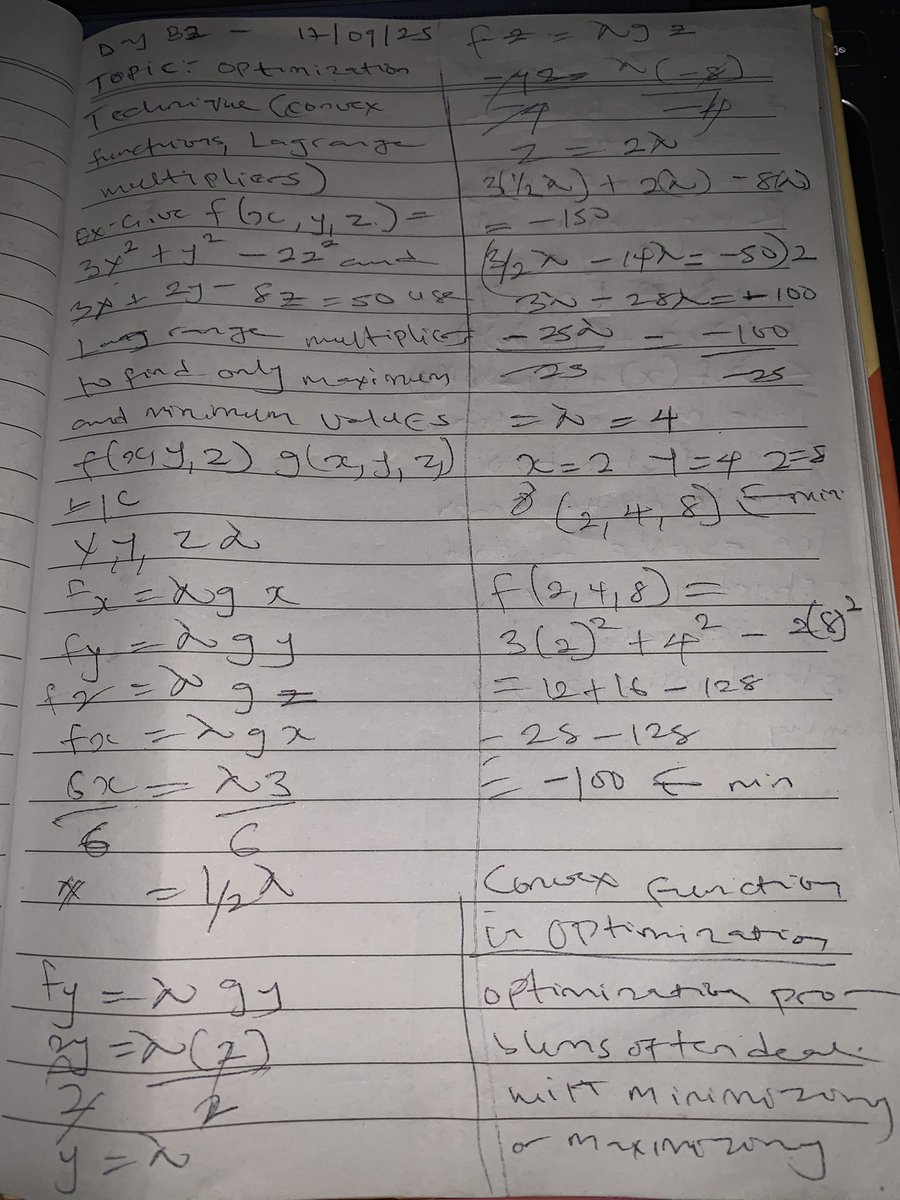 Day 82 - 17/09/25
Topic: Optimization
Technique (convex
functions, Lagrange
multipliers)
ex-Give f(x, y, z) =
3x² + y² - 2z² and
3x + 2y - 8z = 50 use
Lagrange multiplier
to find only maximum
and minimum values
f(x, y, z) g(x, y, z)
x, y, z λ
fx = λg x
fy = λ g y
fz = λ g z
fx = λ g x
6x = λ3
6 6
x = 1/2 λ
fy = λ gy
2y = λ(2)
2 2
y = λ
fz = λg z
-4z = λ(-8)
-4 -4
z = 2λ
3(1/2 λ) + 2(λ) - 8(λ)
= -150
(3/2 λ - 14λ = -50)2
3λ - 28λ = -100
-25λ = -100
-25 -25
= λ = 4
x = 2 y = 4 z = 8
(2, 4, 8) ← min
f(2, 4, 8) =
3(2)² + 4² - 2(8)²
= 12 + 16 - 128
- 28 - 128
= -100 ← min
Convex function
in optimization
optimization pro-
blems often deal
with minimozong
or maximozong